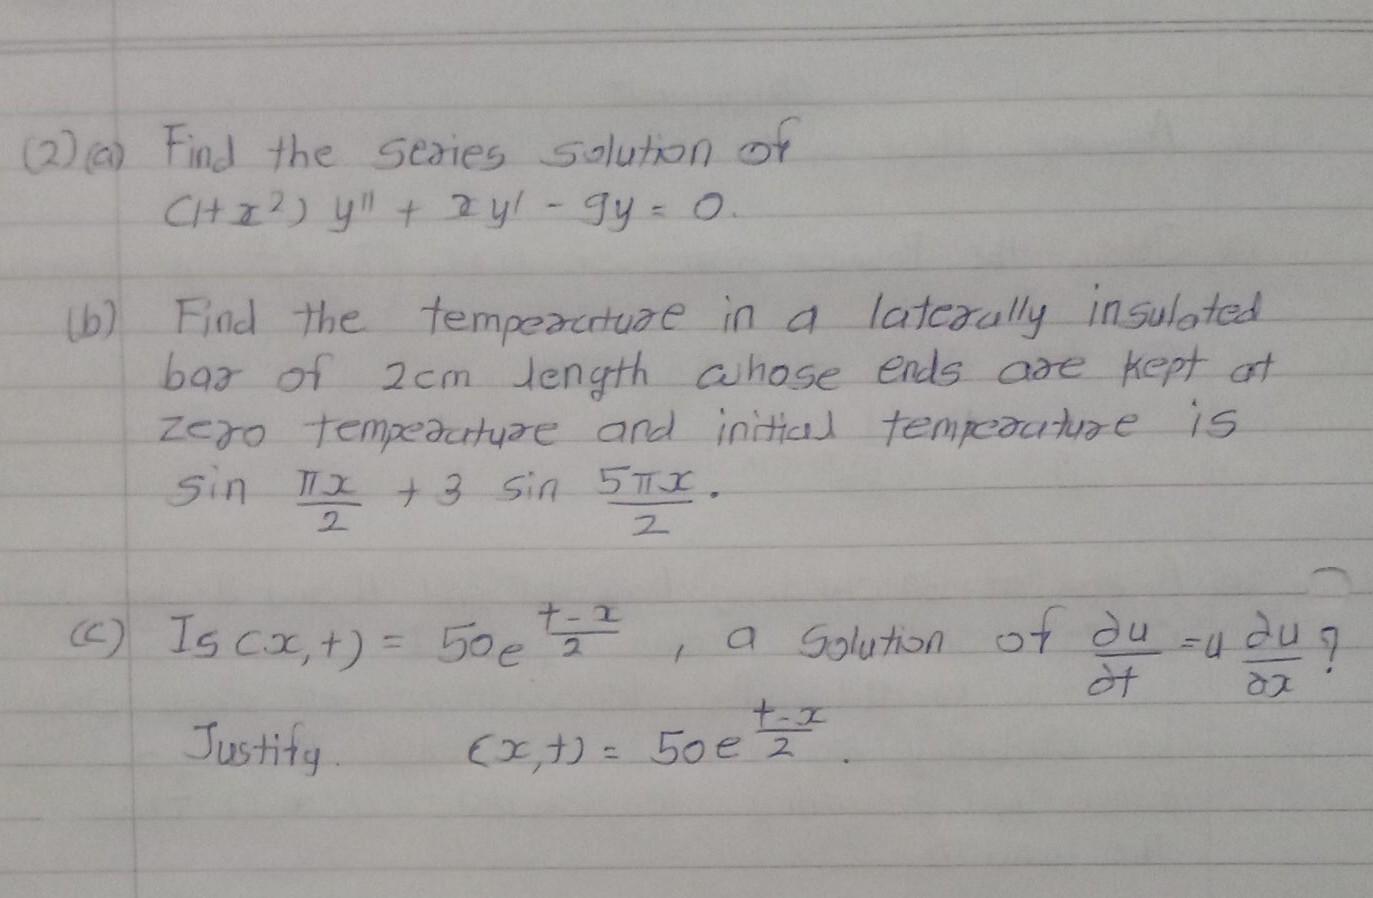 (2)(a) Find the series solution of
(1+x²) y'' + xy' - 9y = 0.
(b) Find the temperature in a laterally insulated
bar of 2cm length whose ends are kept at
zero temperature and initial temperature is
sin πx/2 + 3 sin 5πx/2.
(c) Is (x,t) = 50e^(t-x)/2, a solution of ∂u/∂t = 4 ∂u/∂x?
Justify. (x,t) = 50e^(t-x)/2.